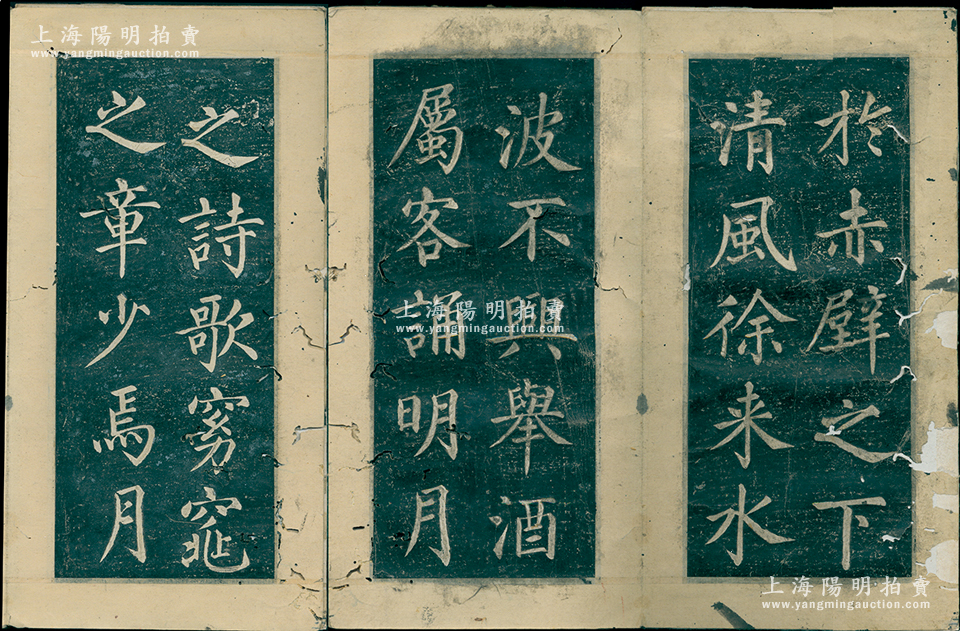 於赤壁之下
清風徐来水
波不興舉酒
屬客誦明月
之詩歌窈窕
之章少焉月
上海陽明拍賣
www.yangmingauction.com
上海陽明拍賣
www.yangmingauction.com
上海陽明拍賣
www.yangmingauction.com